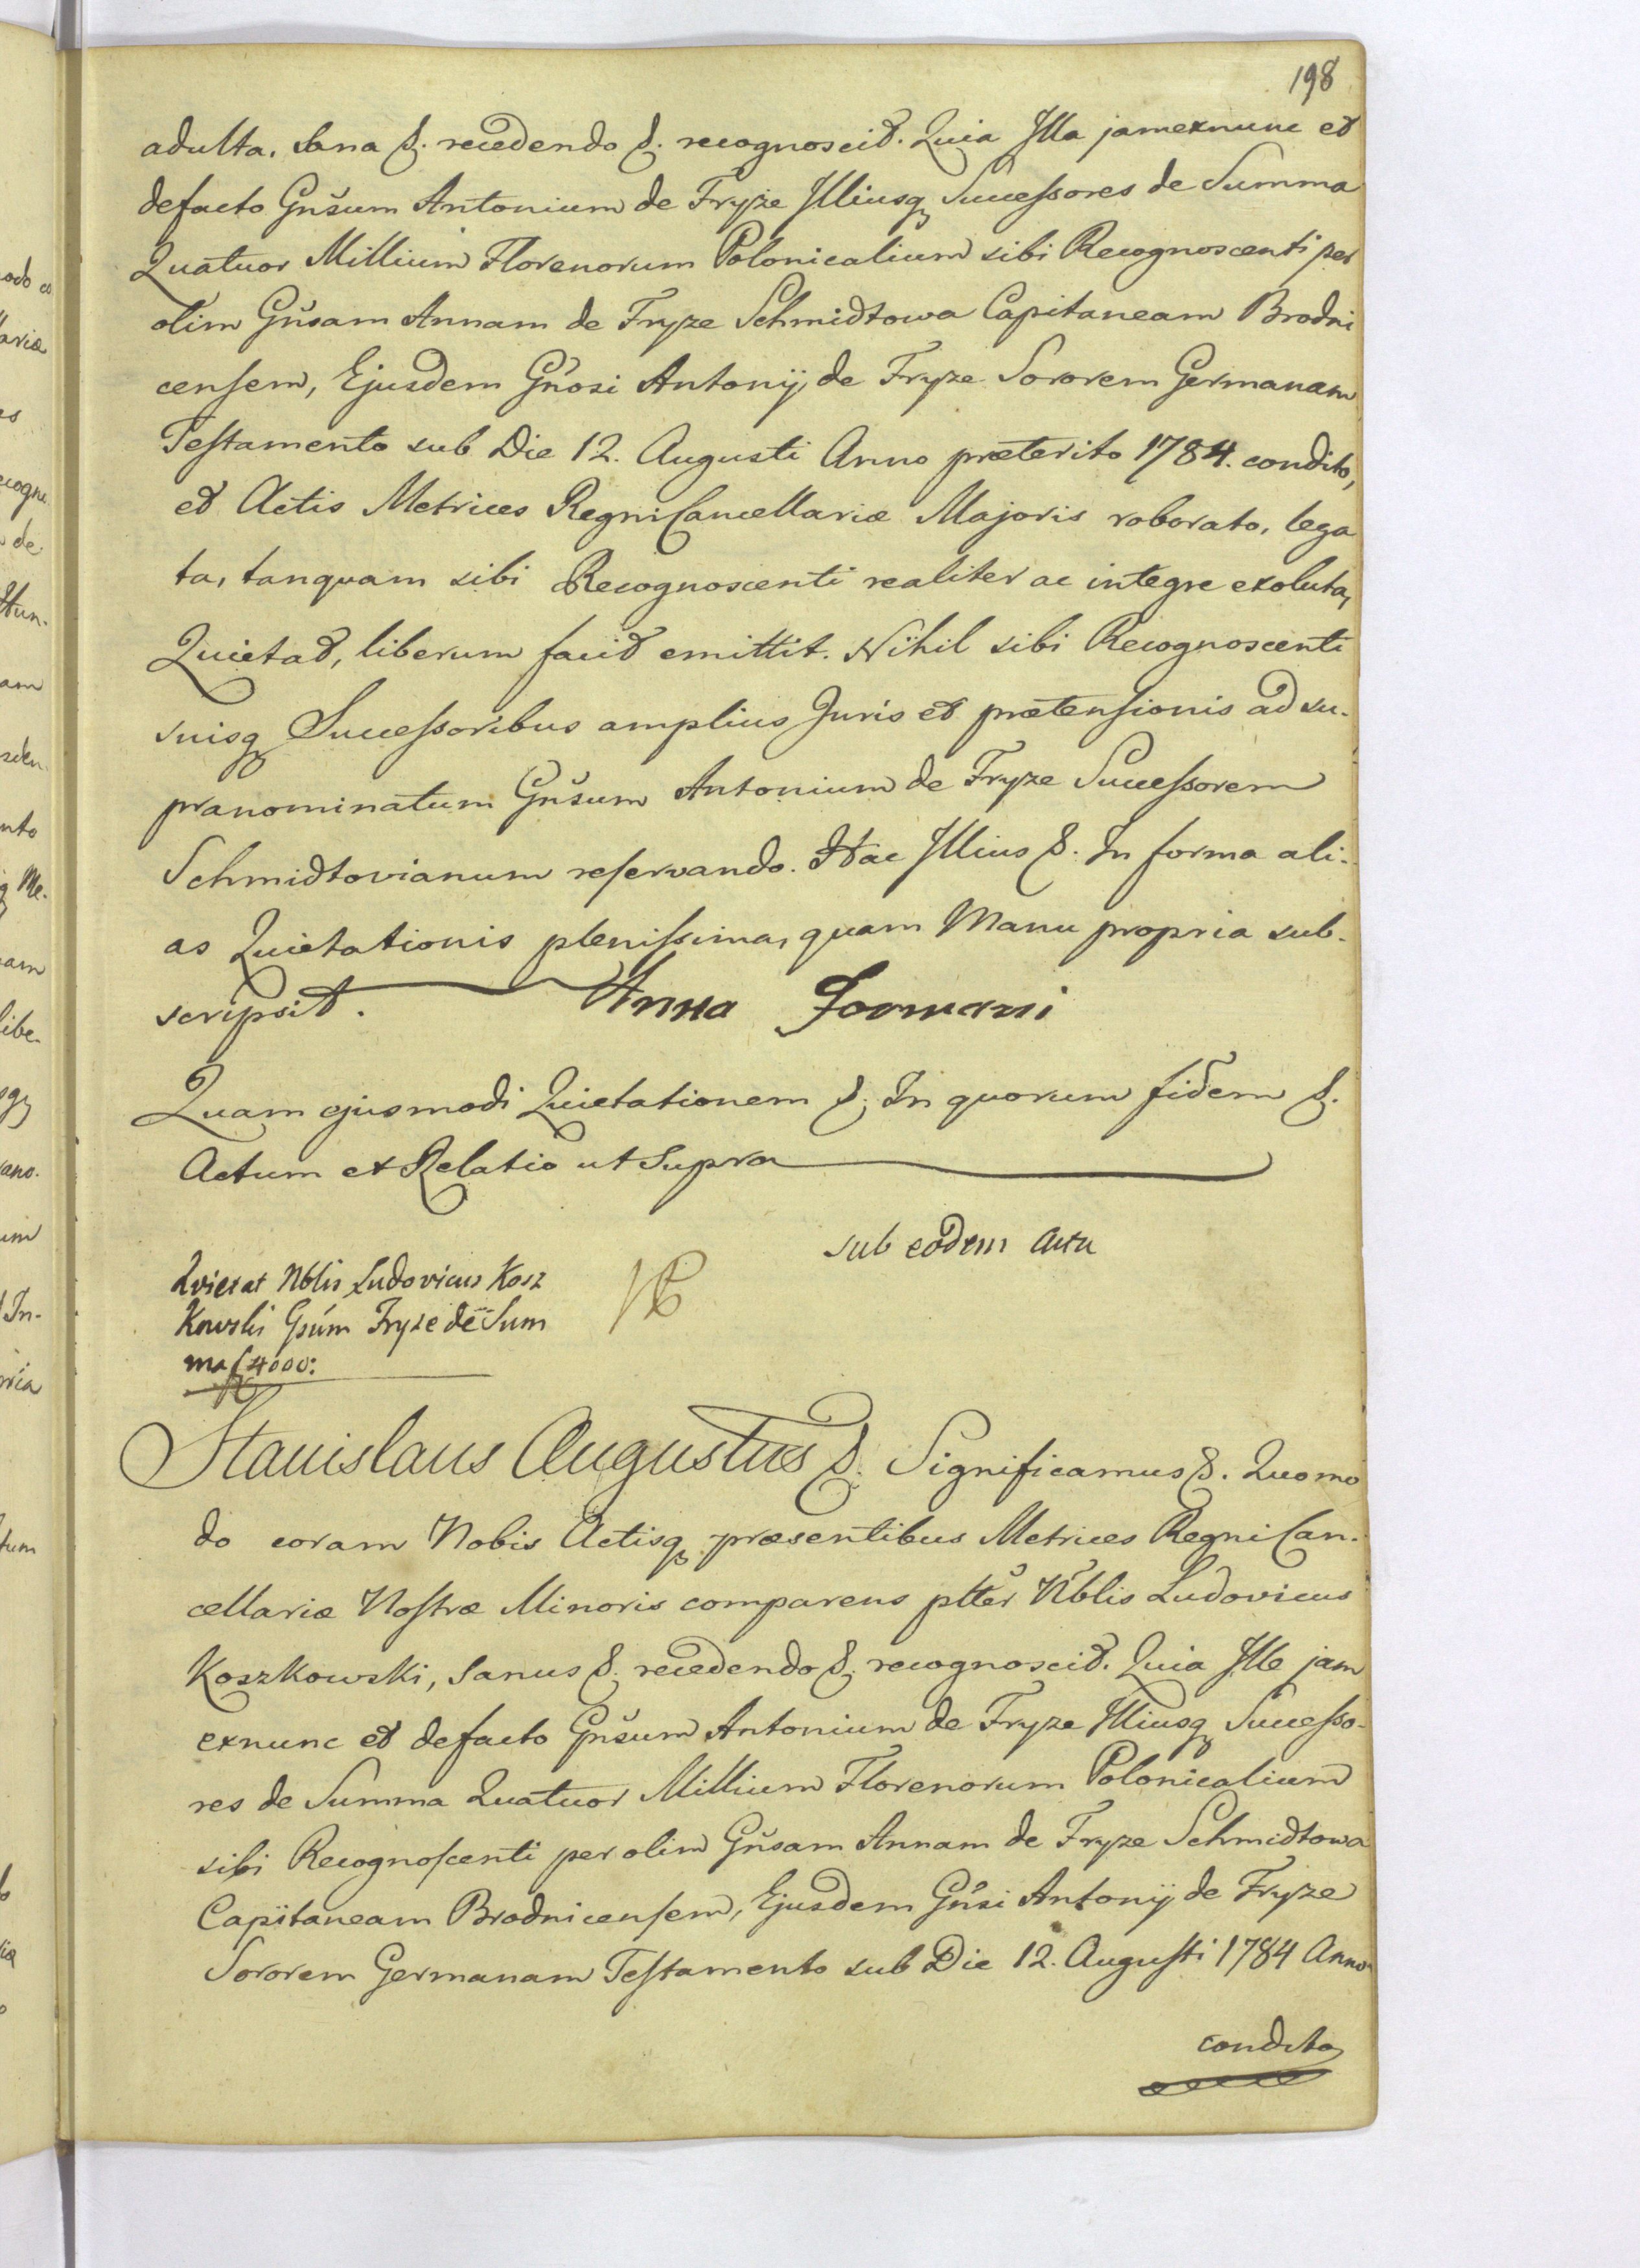 198
adulta, sana &. recedendo &. recognoscit. Quia Illa jamexnunc et
defacto Gnŝum Antonium de Fryze Illiusq Successores de Summa
Quatuor Millium Florenorum Polonicalium sibi Recognoscenti per
olim Gnŝam Annam de Fryze Schmidtowa Capitaneam Brodni
censem, Ejusdem Gnosi Antonij de Fryze Sororem Germanam
Testamento sub Die 12. Augusti Anno præterito 1784. condito,
et Actis Metrices Regni Cancellariæ Majoris roborato, lega
ta, tanquam sibi Recognoscenti realiter ac integre exoluta,
Quietat, liberum facit emittit. Nihil sibi Recognoscenti
suisq Successoribus amplius Juris et prætensionis ad su-
pranominatum Gnŝum Antonium de Fryze Successorem
Schmidtovianum reservando. Hac Illius &. In forma ali-
as Quietationis plenissima, quam Manu propria sub-
scripsit. Anna
Quam ejusmodi Quietationem &. In quorum fidem &.
Actum et Relatio ut Supra
sub eodem actu
Quietat Nblis Ludovicus Kosz
kowski Gsum Fryze de Sum
ma f 4000:
Stanislaus Augustus &. Significamus &. Quomo
do coram Nobis Actisq præsentibus Metrices Regni Can-
cellariæ Nostræ Minoris comparens pltter Nblis Ludovicus
Koszkowski, Sanus &. recedendo &. recognoscit. Quia Ille jam
exnunc et defacto Gnŝum Antonium de Fryze Illiusq Successo-
res de Summa Quatuor Millium Florenorum Polonicalium
sibi Recognoscenti per olim Gnŝam Annam de Fryze Schmidtowa
Capitaneam Brodnicensem, Ejusdem Gnŝi Antonij de Fryze
Sororem Germanam Testamento sub Die 12. Augusti 1784 Anno
condito